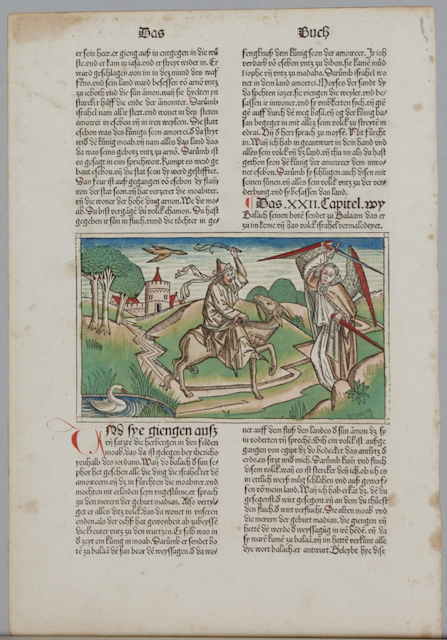 Das Buch
er sein heer. er gieng auß im entgegen in die wü
ste. vnd er kam in iasa. vnd er streyt wider in. Er
ward geschlagen. von im in dez mund des waf
fens. vnd sein land ward besessen vō arnō vntz
zu ieboth vnd die sün amon. wañ sie hetten
starcker hilff die ende der amoniter. Darūmb
israhel nam alle sein stett. vnd wonet in den stetten
amorrei in esebon vñ in iren weylern. Die statt
esebon was des künigs seon amorrei. d da streyt
wid dē künig moab. vñ nam alles das land das
da was seins gebotz vntz zu arnō. Darūmb ist
es gesagt in eim sprichwort. Kumpt es werd ge
bauet esebon. vñ die stat seon dy werd gestifftet.
Das feur ist auß gegangen vō esebon dy flamm
von der stat seon. vñ hat verzeret die moabiter.
vñ die woner der höhe ding arnon. We dir mo
ab. Du bist vergāgē du volck chamos. Du hast
gegeben ir sün in flucht. vnnd die töchter in ge
fengknuß dem künig seon der amorreer. Ir ioch
verdarb vō esebon vntz zu dibon. sie kamē müd
i iophe vñ vntz zu madaba. Darūmb israhel wo
net in dem land amorrei. Moyses der sandt dy
da spehten iazer. sie viengen die weyler. vnd be
sassen ir inwoner. vnd sy vmbkerten sych. vñ gien
gē auff durch dē weg basā. vñ og der künig ba
san begeget in mit allez seim volck zu streytē in
edrai. Vñ d herr sprach zu moysē. Nit fürcht
in. Wañ ich hab in geantwurt in dein hand vnd
alles sein volck vñ dz land. vñ thu im als du hast
gethon seon dē künig der amorreer dem inwo
ner esebon. Darūmb sy schlugen auch disen mit
seinen sünen. vñ alles sein volck vntz zu der ver
derbung. vnd sy besassen das land.
Das .XXII. Capitel. wy
Balach seinen botē sendet zu Balaam das er
zu im keme vñ das volck israhel vermaledeyet.
Und sye giengen auß
vñ satzte die herbergen in den felden
moab. das da ist gelegen bey ihericho
yenhalb des iordans. Wañ do balach d sun se
phor het gesehen alle die ding die israhel tet dē
amorreern. vñ dz in fürchten die moabiter. vnd
mochten nit erleiden seyn vngestüme. er sprach
zu den merern der geburt madian. Also vertylg
get er alles ditz volck. das da wonet in vnseren
enden. als der ochs hat gewonheit ab zubeyssē
die kreuter vntz zu den wurtzen. Er selb was in
d zeyt ein künig in moab. Darūmb er sendet bo
tē zu balaā dē sun beor dē weyssagen. d da wo
net auff dem fluß des landes d sün amon dz sy
in vorderten vñ sprechē. Sih ein volck ist außge
gangen von egipt dz do bedecket das antlitz d
erde. es sitzt wid mich. Darūmb kum vñ fluch
disem volck. wañ es ist stercker deñ ich. ob ich es
in etlich weyß müg schlahen vnd auß gewerf
fen vō meim land. Wañ ich hab erkāt dz. dē du
gesegenst d wirt gesegenet. vñ an dem du thust
den fluch. d wirt verflucht. Die alten moab vnd
die merern der geburt madian. die giengen vñ
hettē dē werd d weyssagūg in irē hēdē. vñ da
sy warē kumē zu balaā. vñ im hettē verkünt alle
dye wort balach. er antwurt. Beleybt hye dise